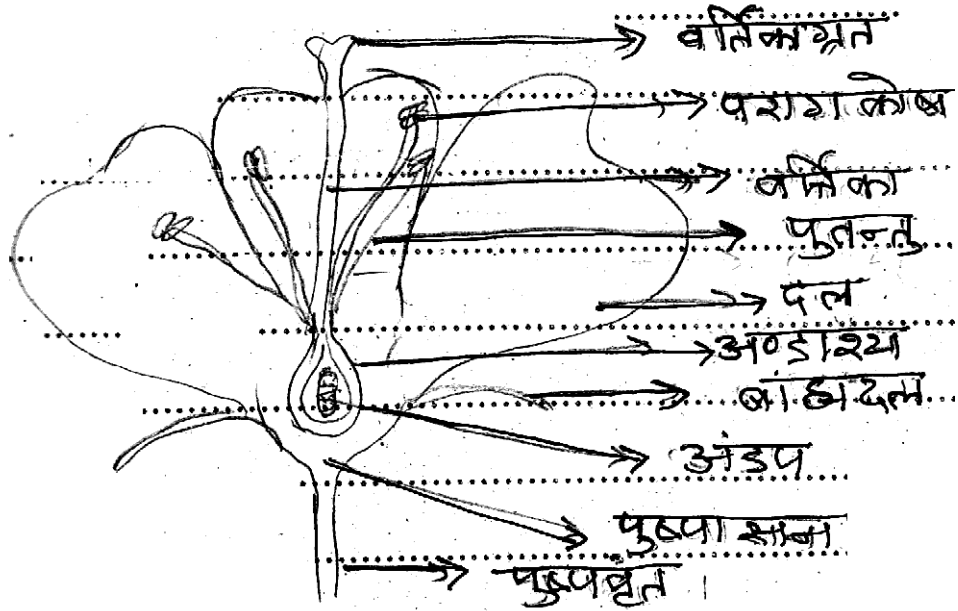 वर्तिकाग्रत
परागकोष
वर्तिका
पुतन्तु
दल
अण्डाश्य
बाह्यदल
अंडप
पुष्पासान
पुष्पवृत